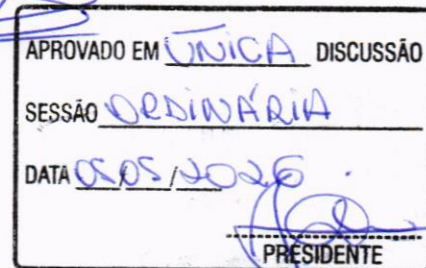 APROVADO EM ÚNICA DISCUSSÃO
SESSÃO ORDINÁRIA
DATA 05/05/2026
PRESIDENTE